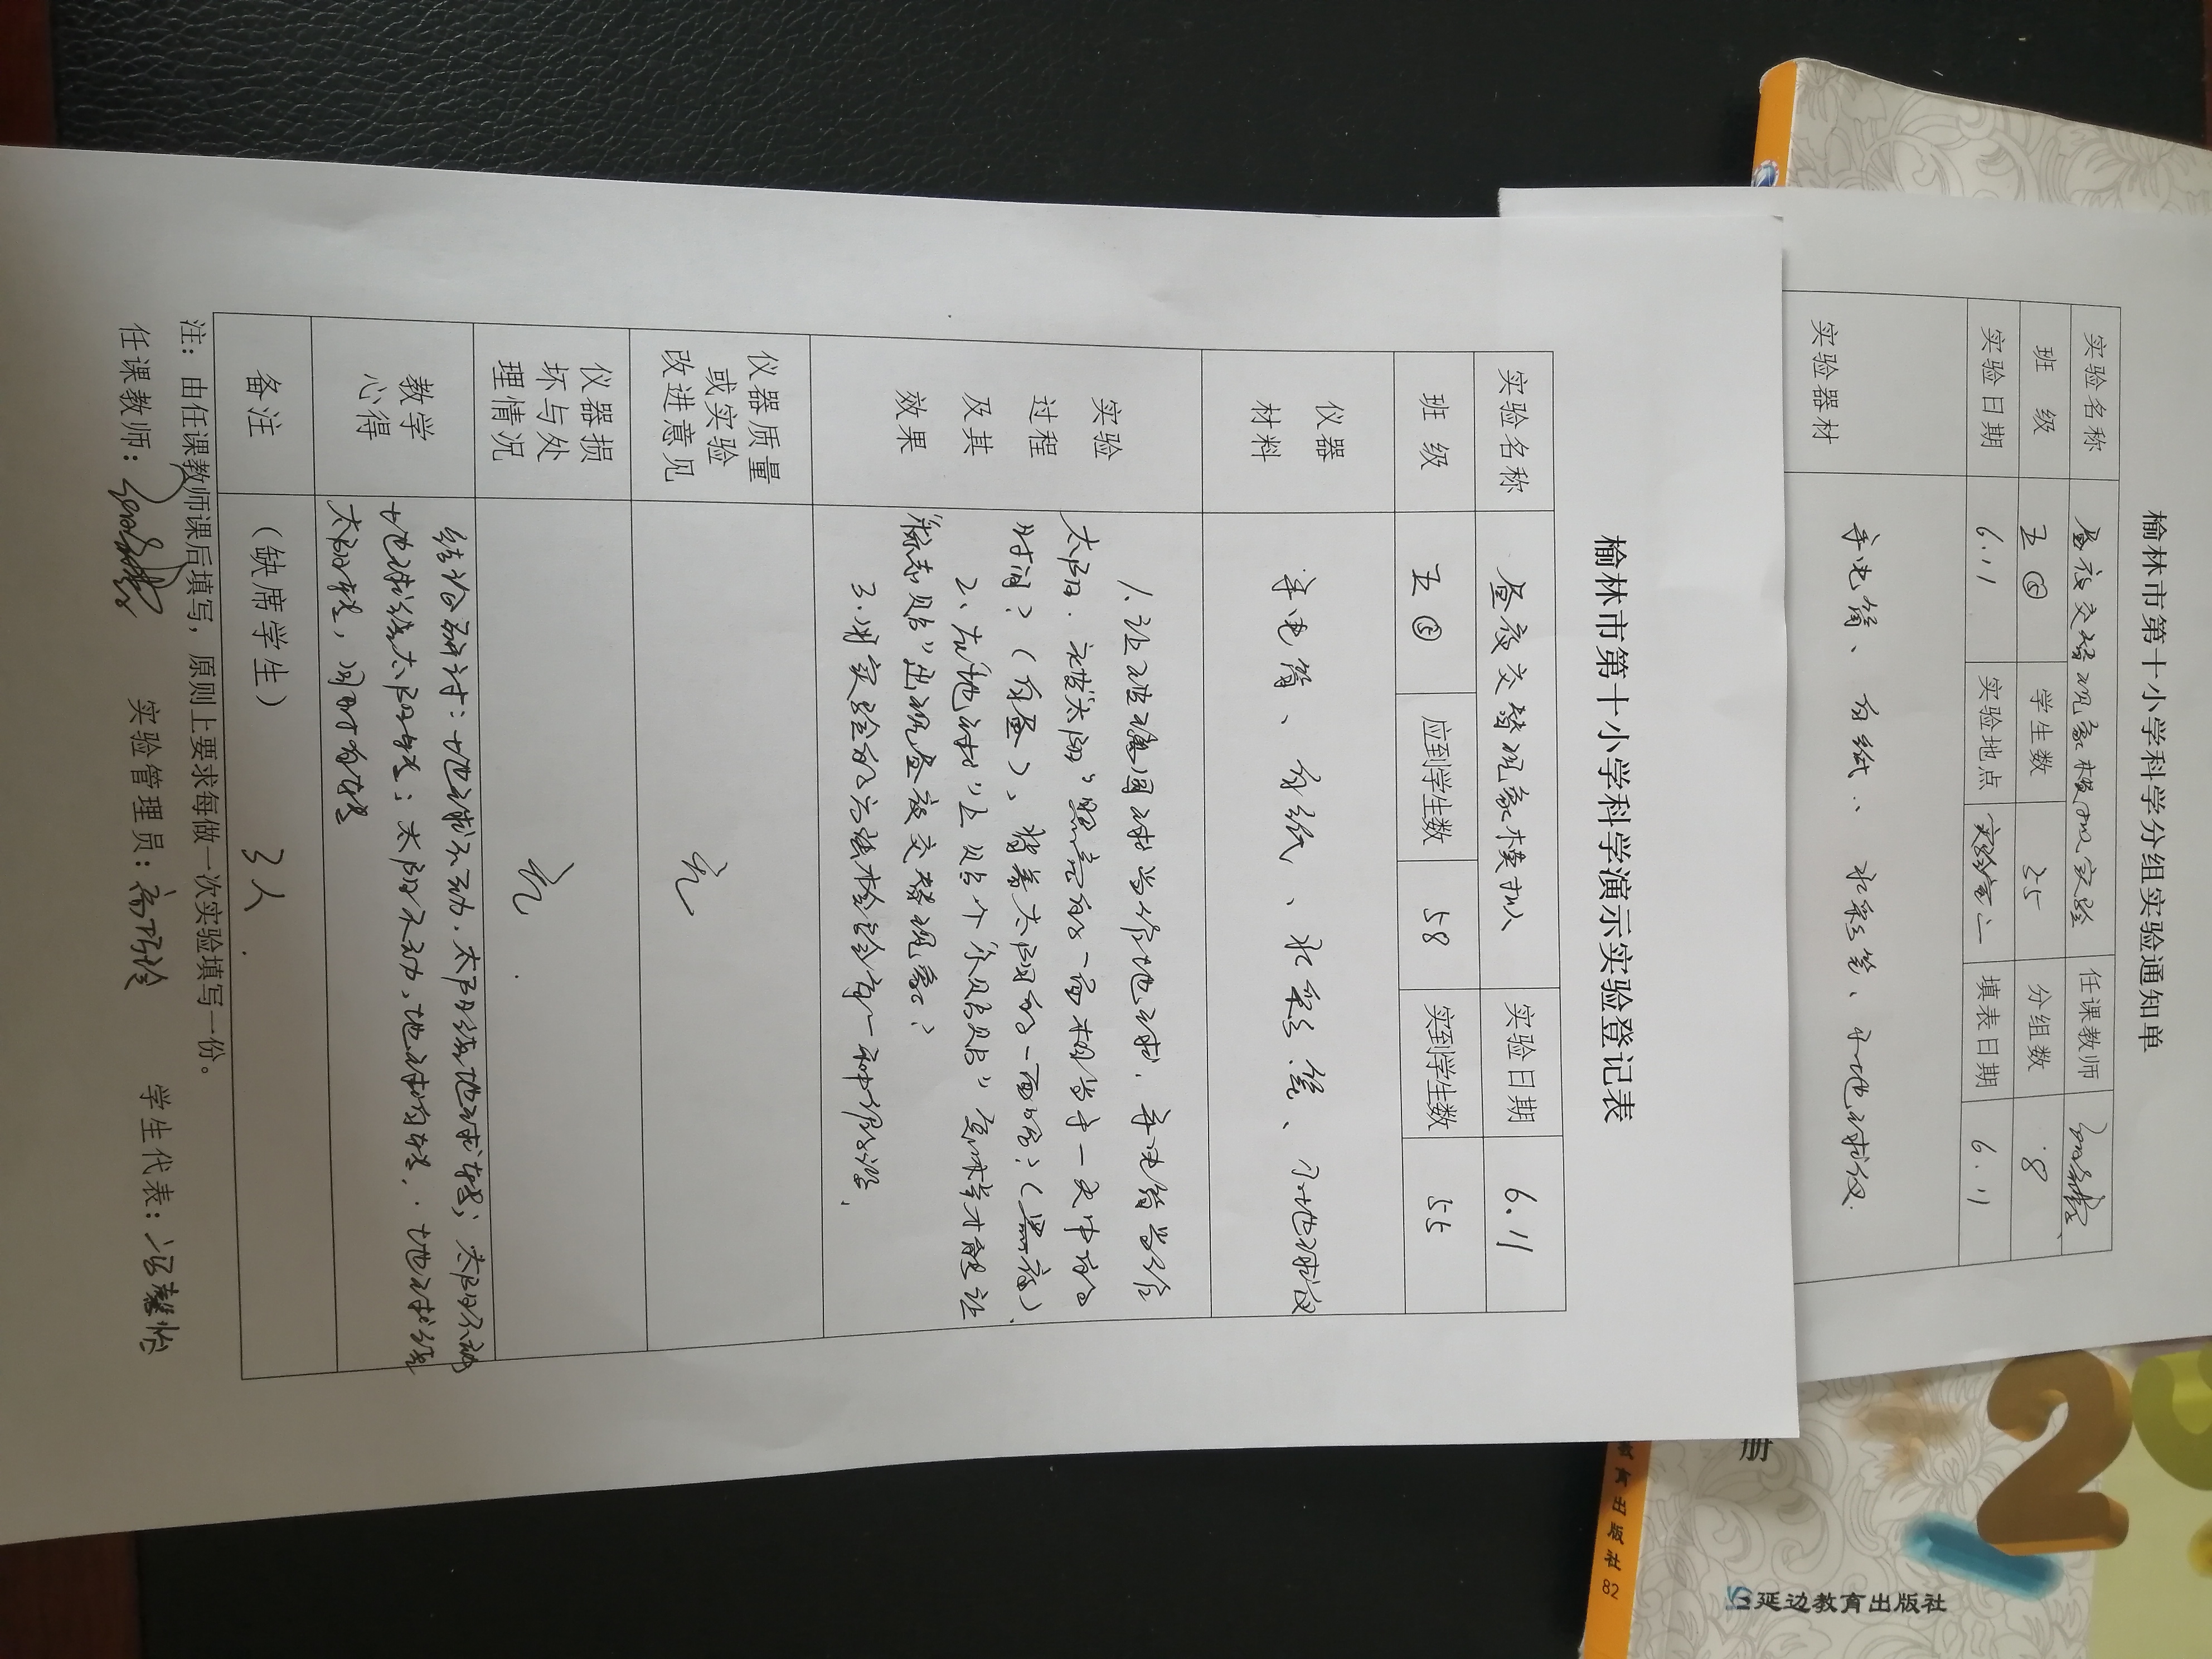 榆林市第十小学科学演示实验登记表
实验名称 昼夜交替现象模拟 实验日期 6.11
班 级 五⑤ 应到学生数 58 实到学生数 55
仪器
材料
手电筒、白纸、水彩笔、小地球仪
实验
过程
及其
效果
1.让玻璃圆球当作地球，手电筒当作
太阳.被“太阳”照亮的一面相当于一天中的
时间？（白昼）、背着太阳的一面呢？（黑夜）
2、在“地球”上贴个 怎样才能让
出现昼夜交替现象？
3.用实验的方法检验每一种假设.
仪器质量
或实验
改进意见
无
仪器损
坏与处
理情况
无.
教学
心得
结论研讨：地球不动.太阳绕地球转；太阳不动
地球绕太阳转；太阳不动，地球自转.地球绕
太阳转，同时自转
备注 （缺席学生） 3人.
注：由任课教师课后填写，原则上要求每做一次实验填写一份。
任课教师： 实验管理员： 学生代表：
榆林市第十小学科学分组实验通知单
实验名称 昼夜交替现象模拟实验 任课教师
班 级 五⑤ 学生数 55 分组数 8
实验日期 6.11 实验地点 实验室二 填表日期 6.11
实验器材 手电筒、白纸、水彩笔、小地球仪.
册
教育出版社 82
2
延边教育出版社